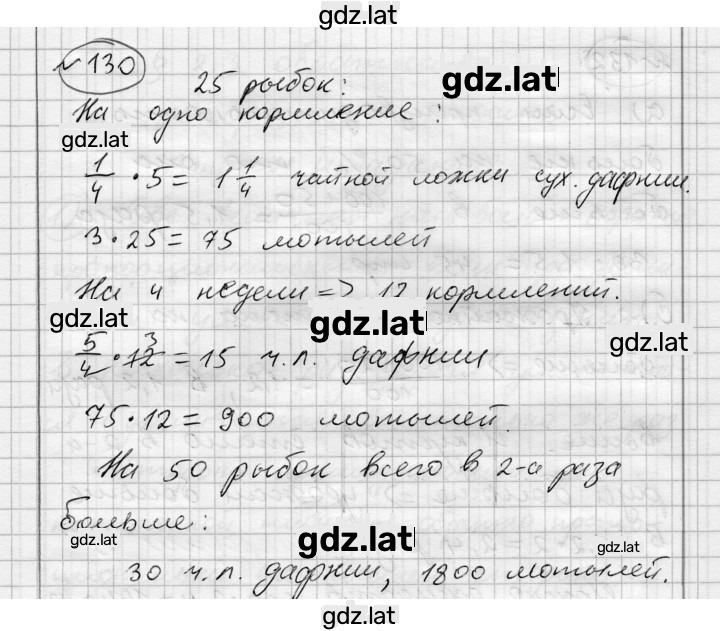 gdz.lat
№ 130
25 рыбок:
gdz.lat
На одно кормление:
gdz.lat
1/4 · 5 = 1 1/4 чайной ложки сух. дафнии.
3 · 25 = 75 мотылей
На 4 недели => 12 кормлений.
gdz.lat gdz.lat gdz.lat
5/4 · 12 3 = 15 ч.л. дафнии
75 · 12 = 900 мотылей.
На 50 рыбок всего в 2-а раза
больше:
gdz.lat gdz.lat gdz.lat
30 ч.л. дафнии, 1800 мотылей.
gdz.lat